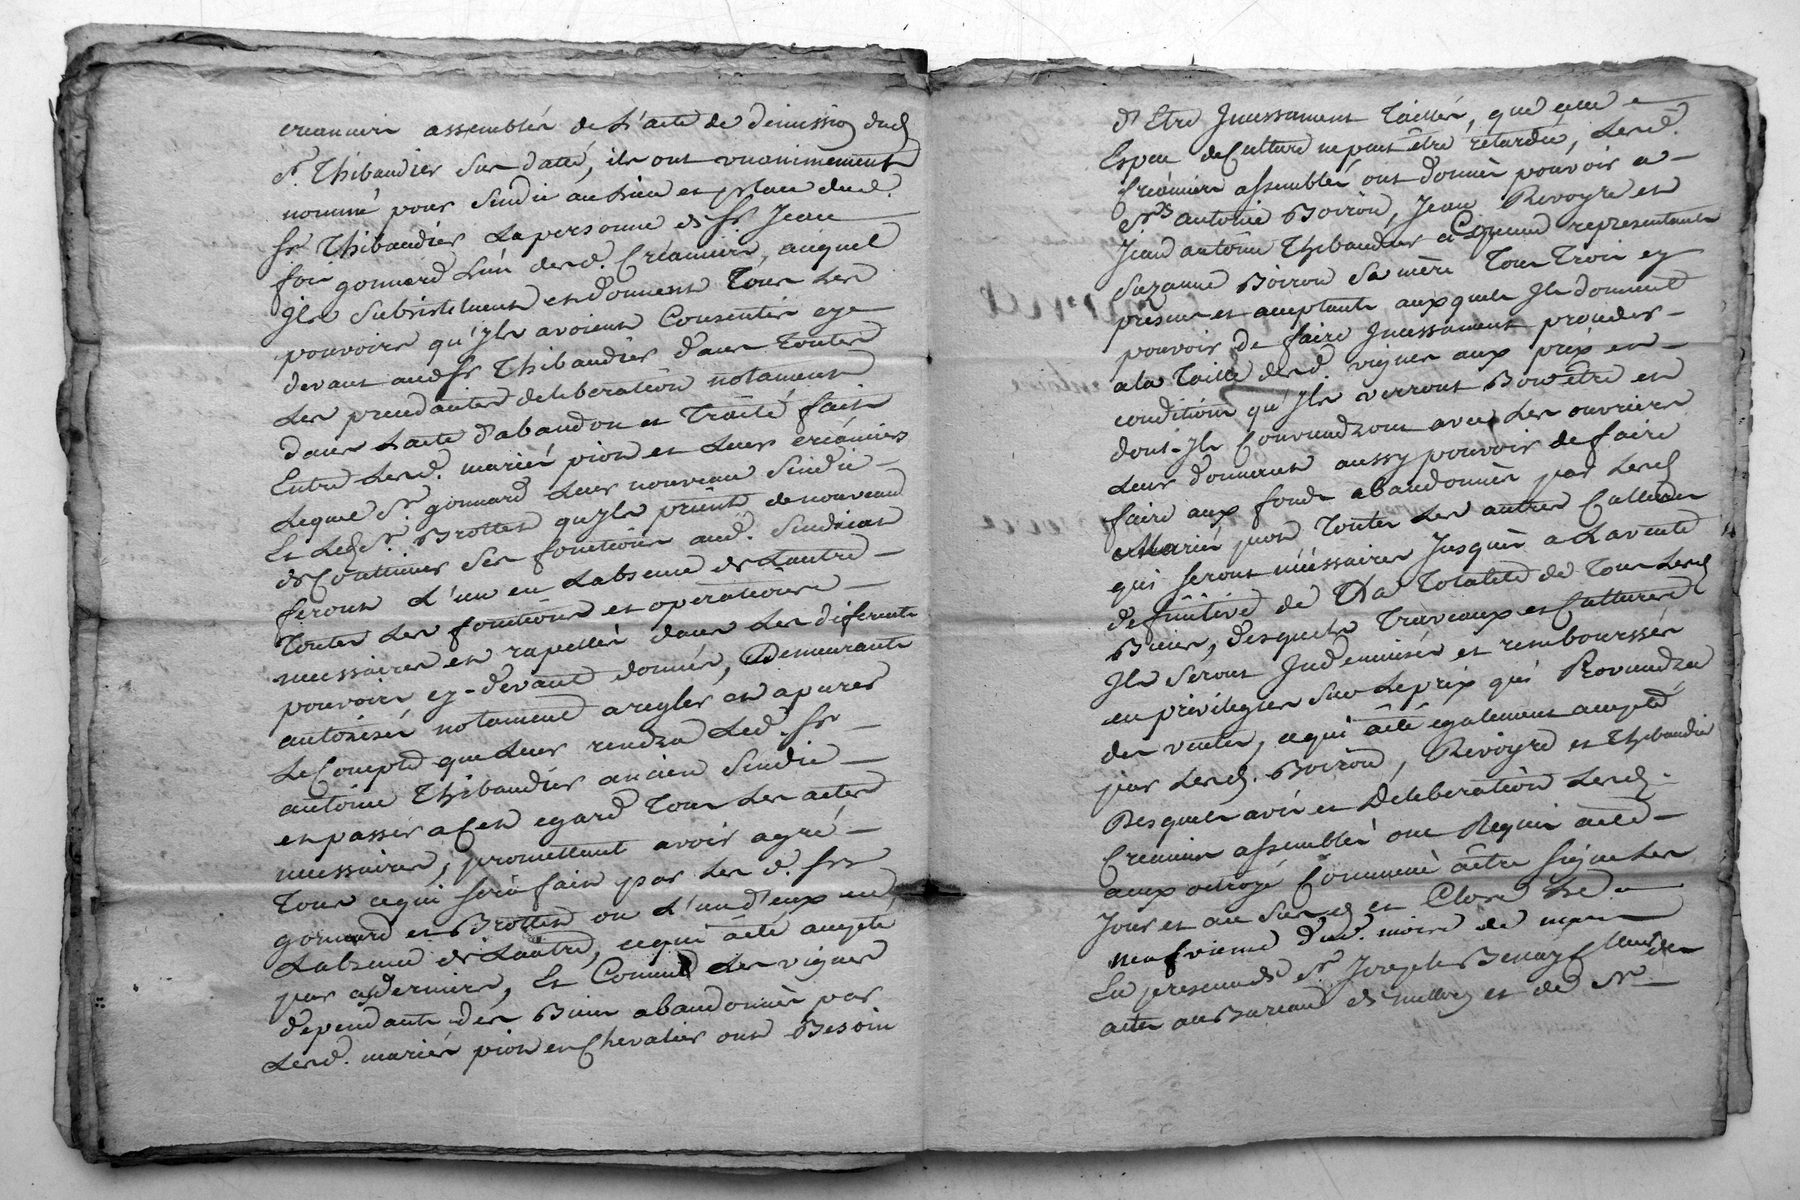 creanciers assemblés de L'acte de demission dud
Sr. Thibaudier sus daté, ils ont unanimement
nommé pour Sindic au Lieu et place dud.
Sr Thibaudier La personne de Sr Jean
gonnard L'un desd. Créanciers, auquel
Ils Subristituent et donnent Tous Les
pouvoirs qu'Ils avoient Consentis cy
devant aud Sr Thibaudier dans Toutes
Les precedantes deliberation notament
dans L'acte d'abandon et Traité fait
Entre Lesd. mariés pion et Leurs créanciers
Lequel Sr. gonnard Leur nouveau Sindic
Et Led Sr. Brottet qu'Ils prient de nouveau
de Continuer Ses fonctions aud. Sindicat
feront L'un en Labsence de Lautre
Toutes Les fonctions et operations
necessaires et rapellés dans Les diferents
pouvoirs cy-devant donnés, Demeurants
autorisés notament a regler et apurer
Le Compte que Leur rendra Led. Sr
antoine Thibaudier ancien Sindic
et passer a Cet egard Tous Les actes
necessaires, promettant avoir agré
Tout cequi Sera fait par Lesd. Srs
gonnard et Brottet ou L'un d'eux en
Labsence de Lautre, cequi a été accepté
par ce dernier, Et Comme Les vignes
dependantes des Biens abandonnés par
Lesd. mariés pion et Chevalier ont Besoin
d'Etre Incessament Taillés, que cette
Espece de Culture ne peut être retardée, Lesd.
Créanciers assemblés ont donné pouvoir a
Srs antoine Boiron, Jean Revoyre et
Jean antoine Thibaudier a Ce present representant
Suzanne Boiron Sa mere Tous Trois cy
presents et acceptants auxquels Ils donnent
pouvoir de faire Incessament proceder
a la Taille desd. vignes aux prix et
conditions qu'Ils verront Bon être et
dont Ils Conviendront avec Les ouvriers
Leur donnent aussy pouvoir de faire
faire aux fonds abandonnés par Lesd
Mariés pion Toutes Les autres Cultures
qui Seront nécéssaires Jusques a La vente
definitive de La Totalité de Tous Lesd
Biens, desquels Travaux et Cultures
Ils Seront Indemnisés et rembourssés
en privileges Sur Le prix qui Proviendra
des ventes, ce qui a été également accepté
par Lesd. Boiron, Revoyre et Thibaudier
Desquels avis et Deliberation Lesd.
Creanciers assemblés ont Requis acte
aux octroyé Commencé a être Signé Les
Jour et an Susd et Clos Le
neufvieme dud. mois de mars
En presence de Sr. Joseph Benay
actes au Bureau de et de Sr